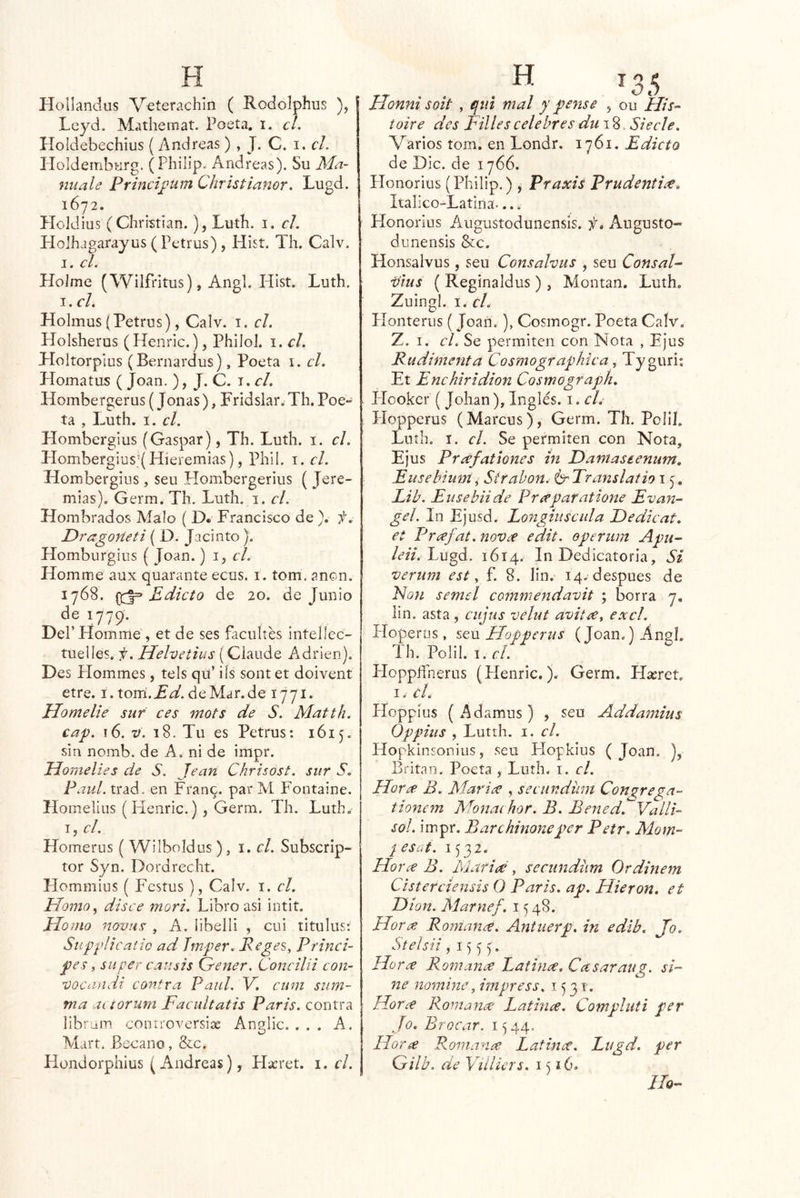 H
Hollandus Veterachin ( Rodolphus ),
Leyd. Mathemat. Poeta. 1. cl.
Holdebechius ( Andreas ) , J. C. 1. cl.
Holdemburg. (Philip. Andreas). Su Ma-
nuale Principum Christianor. Lugd.
1672.
Holdius (Christian. ), Luth. 1. cl.
Holhagarayus ( Petrus) , Hist. Th. Calv.
1. cl.
Holme (Wilfritus), Angl. Hist. Luth.
1. cl.
Holmus (Petrus) , Calv. 1. cl.
Holsherus (Henric.), Philol. 1. cl.
Holtorpius (Bernardus), Poeta 1. cl.
Homatus ( Joan. ), J. C. 1. cl.
Hombergerus ( Jonas), Fridslar. Th. Poe-
ta , Luth. 1. cl.
Hombergius (Gaspar) , Th. Luth. 1. cl.
Hombergius (Hieremias), Phil. 1. cl.
Hombergius , seu Hombergerius ( Jere-
mias). Germ. Th. Luth. 1. cl.
Hombrados Malo ( D. Francisco de ). ỳ.
Dragoneti ( D. Jacinto ).
Homburgius ( Joan. ) 1, cl.
Homme aux quarante ecus. 1. tom. anon.
1768. ☞ Edicto de 20. de Junio
de 1779.
Del' Homme , et de ses facultès intellec-
tuelles. ỳ. Helvetius (Claude Adrien).
Des Hommes , tels qu' ils sont et doivent
etre. 1. tom. Ed. de Mar. de 1771.
Homelie sur ces mots de S. Matth.
cap. 16. v. 18. Tu es Petrus: 1615.
sin nomb. de A. ni de impr.
Homelies de S. Jean Chrisost. sur S.
Paul. trad. en Franç. par M Fontaine.
Homelius (Henric.) , Germ. Th. Luth.
1, cl.
Homerus ( Wilboldus ), 1. cl. Subscrip-
tor Syn. Dordrecht.
Hommius ( Festus ), Calv. 1. cl.
Homo, disce mori. Libro asi intit.
Homo novus , A. libelli , cui titulus:
Supplicatio ad Imper. Reges, Princi-
pes , super causis Gener. Concilii con-
vocandi contra Paul. V. cum sum-
ma actorum Facultatis Paris. contra
librum controversiæ Anglic. . . . A.
Mart. Becano, &c.
Hondorphius (Andreas), Hæret. 1. cl.
H 135
Honni soit , qui mal y pense , ou His-
toire des Filles celebres du 18. Siecle.
Varios tom. en Londr. 1761. Edicto
de Dic. de 1766.
Honorius (Philip.) , Praxis Prudentiæ.
Italico-Latina....
Honorius Augustodunensis. ỳ. Augusto-
dunensis &c.
Honsalvus , seu Consalvus , seu Consal-
vius ( Reginaldus ) , Montan. Luth.
Zuingl. 1. cl.
Honterus ( Joan. ), Cosmogr. Poeta Calv.
Z. 1. cl. Se permiten con Nota , Ejus
Rudimenta Cosmographica, Tyguri:
Et Enchiridion Cosmograph.
Hooker ( Johan), Inglés. 1. cl.
Hopperus (Marcus), Germ. Th. Polil.
Luth. 1. cl. Se permiten con Nota,
Ejus Præfationes in Damascenum.
Eusebium, Strabon. & Translatio 15.
Lib. Eusebii de Præparatione Evan-
gel. In Ejusd. Longiuscula Dedicat.
et Præfat. novæ edit. operum Apu-
leii. Lugd. 1614. In Dedicatoria, Si
verum est , f. 8. lin. 14. despues de
Non semel commendavit ; borra 7.
lin. asta , cujus velut avitæ, excl.
Hoperus , seu Hopperus (Joan.) Angl.
Th. Polil. 1. cl.
Hoppffnerus (Henric.). Germ. Hæret.
1. cl.
Hoppius ( Adamus ) , seu Addamius
Oppius , Lutth. 1. cl.
Hopkinsonius, seu Hopkius ( Joan. ),
Britan. Poeta , Luth. 1. cl.
Horæ B. Mariæ , secundùm Congrega-
tionem Monachor. B. Bened. Valli-
sol. impr. Barchinone per Petr. Mom-
pesat. 1532.
Horæ B. Mariæ , secundùm Ordinem
Cisterciensis O Paris. ap. Hieron. et
Dion. Marnef. 1548.
Horæ Romanæ. Antuerp. in edib. Jo.
Stelsii , 1555.
Horæ Romanæ Latinæ. Cæsaraug. si-
ne nomine, impress. 1531.
Horæ Romanæ Latinæ. Compluti per
Jo. Brocar. 1544.
Horæ Romanæ Latinæ. Lugd. per
Gilb. de Villiers. 1516.
Ho-